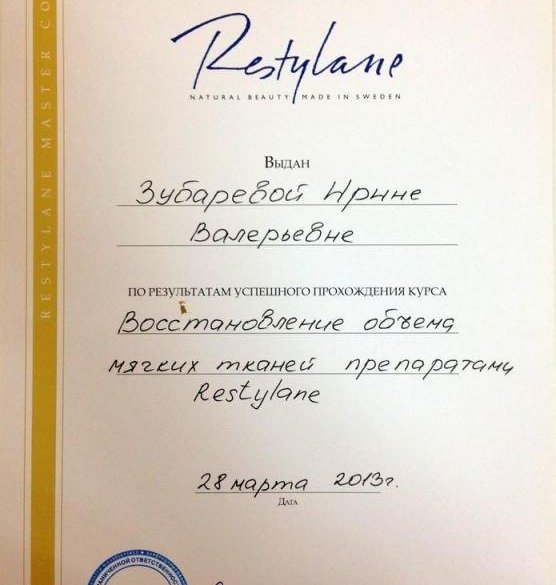 RESTYLANE MASTER CO
Restylane
NATURAL BEAUTY MADE IN SWEDEN
Выдан
Зубаревой Ирине
Валерьевне
по результатам успешного прохождения курса
Восстановление объема
мягких тканей препаратами
Restylane
28 марта 2013г.
Дата
ОГРАНИЧЕННОЙ ОТВЕТСТВЕННОСТЬЮ